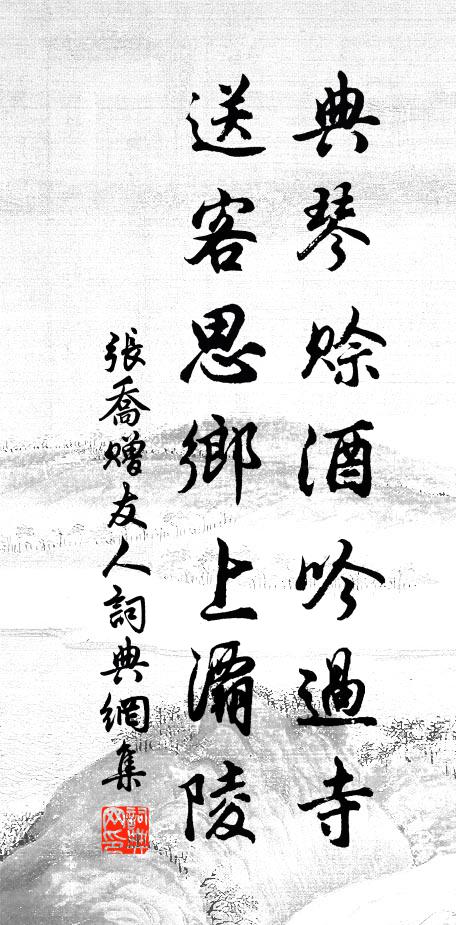 典琴賒酒吟過寺
送客思鄉上灞陵
張喬贈友人詞典網集